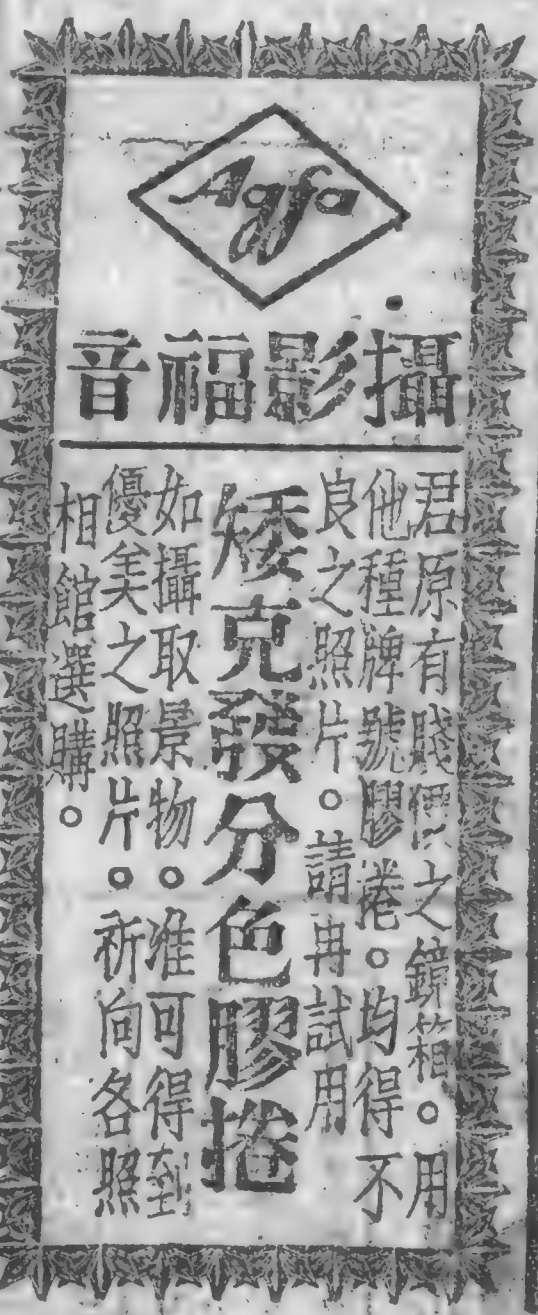 Agfa
攝影福音
君原有賤價之鏡箱。用
他種牌號膠捲。均得不
良之照片。請再試用
矮克發分色膠捲
如攝取景物。准可得到
優美之照片。祈向各照
相館選購。